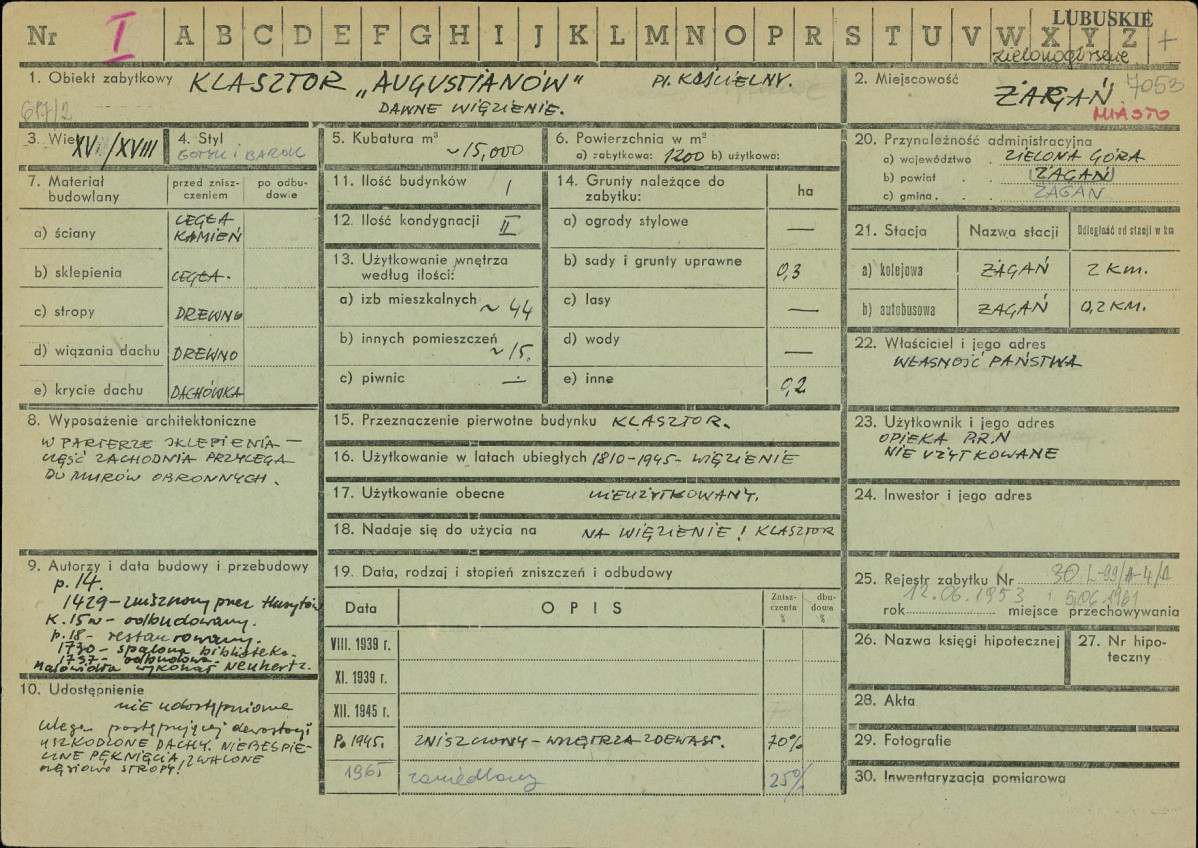 Nr I A B C D E F G H I J K L M N O P R S T U V W X Y Z +
LUBUSKIE
zielonogórskie
1. Obiekt zabytkowy KLASZTOR „AUGUSTIANÓW" Pl. KOŚCIELNY.
DAWNE WIĘZIENIE.
617/2
2. Miejscowość 7053
ŻAGAŃ
MIASTO
3. Wiek XV/XVIII
4. Styl
GOTYK i BAROK
5. Kubatura m³
~15,000
6. Powierzchnia w m²
a) zabytkowa: 1200 b) użytkowa:
7. Materiał budowlany
przed zniszczeniem
po odbudowie
a) ściany CEGŁA
KAMIEŃ
b) sklepienia CEGŁA.
c) stropy DREWNO
d) wiązania dachu DREWNO
e) krycie dachu DACHÓWKA
8. Wyposażenie architektoniczne
W PARTERZE SKLEPIENIA —
CZĘŚĆ ZACHODNIA PRZYLEGA
DO MURÓW OBRONNYCH.
9. Autorzy i data budowy i przebudowy
p. 14.
1429 – zniszczony przez Husytów
K. 15 w – odbudowany.
p. 18 – restaurowany.
1730 – spalona biblioteka.
1737 – odbudowa.
Malowidła wykonał Neuhertz.
10. Udostępnienie
nie udostępnione
Ulega postępującej dewastacji
USZKODZONE DACHY. NIEBESPIE-
CZNE PĘKNIĘCIA, ZWALONE
częściowo STROPY!
11. Ilość budynków I
12. Ilość kondygnacji II
13. Użytkowanie wnętrza
według ilości:
a) izb mieszkalnych ~ 44
b) innych pomieszczeń ~ 15.
c) piwnic —
14. Grunty należące do
zabytku: ha
a) ogrody stylowe —
b) sady i grunty uprawne 0,3
c) lasy —
d) wody —
e) inne 0,2
15. Przeznaczenie pierwotne budynku KLASZTOR.
16. Użytkowanie w latach ubiegłych 1810-1945- WIĘZIENIE
17. Użytkowanie obecne NIEUŻYTKOWANY.
18. Nadaje się do użycia na NA WIĘZIENIE! KLASZTOR
19. Data, rodzaj i stopień zniszczeń i odbudowy
Data OPIS Zniszczenia % dbudowa %
VIII. 1939 r.
XI. 1939 r.
XII. 1945 r.
Po 1945. ZNISZCZONY – WNĘTRZA ZDEWAST. 70%
1965 zaniedbany 25%
20. Przynależność administracyjna
a) województwo . ZIELONA GÓRA
b) powiat . . ŻAGAŃ
c) gmina . . . ŻAGAŃ
21. Stacja Nazwa stacji Odległość od stacji w km
a) kolejowa ŻAGAŃ 2 KM.
b) autobusowa ŻAGAŃ 0,2 KM.
22. Właściciel i jego adres
WŁASNOŚĆ PAŃSTWA
23. Użytkownik i jego adres
OPIEKA P.R.N
NIE UŻYTKOWANE
24. Inwestor i jego adres
25. Rejestr zabytku Nr 30 L-99/A-4/A
12.06.1953 i 5,06.1961
rok miejsce przechowywania
26. Nazwa księgi hipotecznej
27. Nr hipoteczny
28. Akta
29. Fotografie
30. Inwentaryzacja pomiarowa